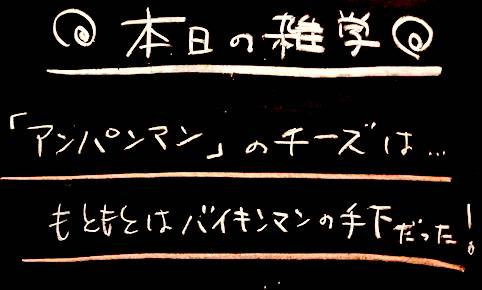 本日の雑学
「アンパンマン」のチーズは…
もともとはバイキンマンの手下だった!。